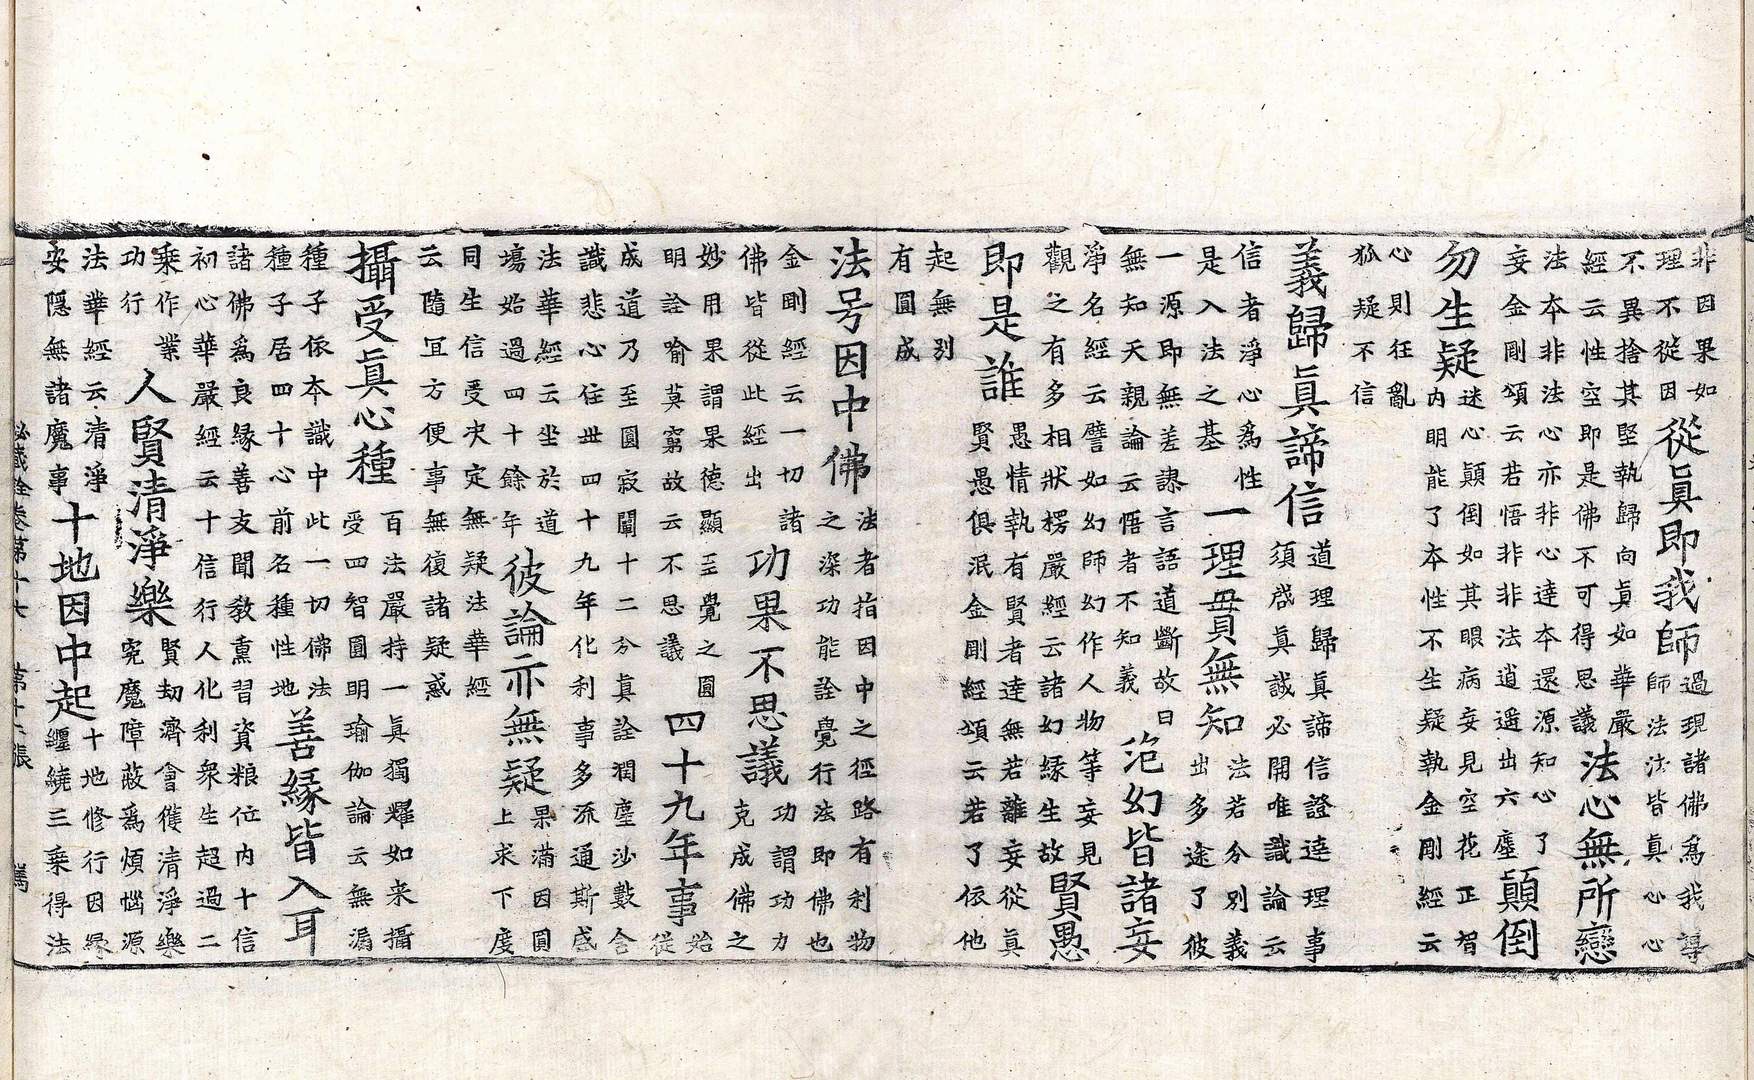 非因果如
理不從因
從眞即我師
過現諸佛爲我導
師法法皆真心心
不異捨其堅執歸向眞如華嚴
經云性空即是佛不可得思議
法心無所戀
法本非法心亦非心達本還源知心了
妄金剛頌云若悟非非法逍遥出六塵
顛倒
勿生疑
迷心顛倒如其眼病妄見空花正智
内明能了本性不生疑執金剛經云
心則狂亂
狐疑不信
義歸眞諦信
道理歸眞諦信證達理事
須啓眞誠必開唯識論云
信者淨心爲性
是入法之基
一理貫無知
法若分別義
出多途了彼
一源即無差謬言語道斷故曰
無知天親論云悟者不知義
笵幻皆諸妄
淨名經云譬如幻師幻作人物等妄見
觀之有多相狀楞嚴經云諸幻縁生故
賢愚
即是誰
愚情執有賢者達無若離妄從眞
賢愚俱泯金剛經頌云若了依他
起無别
有圓成
法号因中佛
法者指因中之徑路有利物
之深功能詮覺行法即佛也
金剛經云一切諸
佛皆從此經出
功果不思議
功謂功力
克成佛之
妙用果謂果德顯至覺之圓
明詮喻莫窮故云不思議
四十九年事
始
從
成道乃至圓寂闡十二分真詮潤塵沙數含
識悲心住世四十九年化利事多流通斯盛
法華經云坐於道
塲始過四十餘年
彼論亦無疑
果滿因圓
上求下度
同生信受决定無疑法華經
云隨冝方便事無復諸疑惑
攝受眞心種
百法嚴持一眞獨耀如来攝
受四智圓明瑜伽論云無漏
種子依本識中此一切佛法
種子居四十心前名種性地
善縁皆入耳
諸佛爲良縁善友聞教熏習資粮位内十信
初心華嚴經云十信行人化利衆生超過二
乘作業
功行
人賢清淨樂
賢劫濟會獲清淨樂
宛魔障蔽爲煩惱源
法華經云清淨
安隱無諸魔事
十地因中起
十地修行因縁
纒繞三乘得法
秘藏詮卷第十七 第十二張